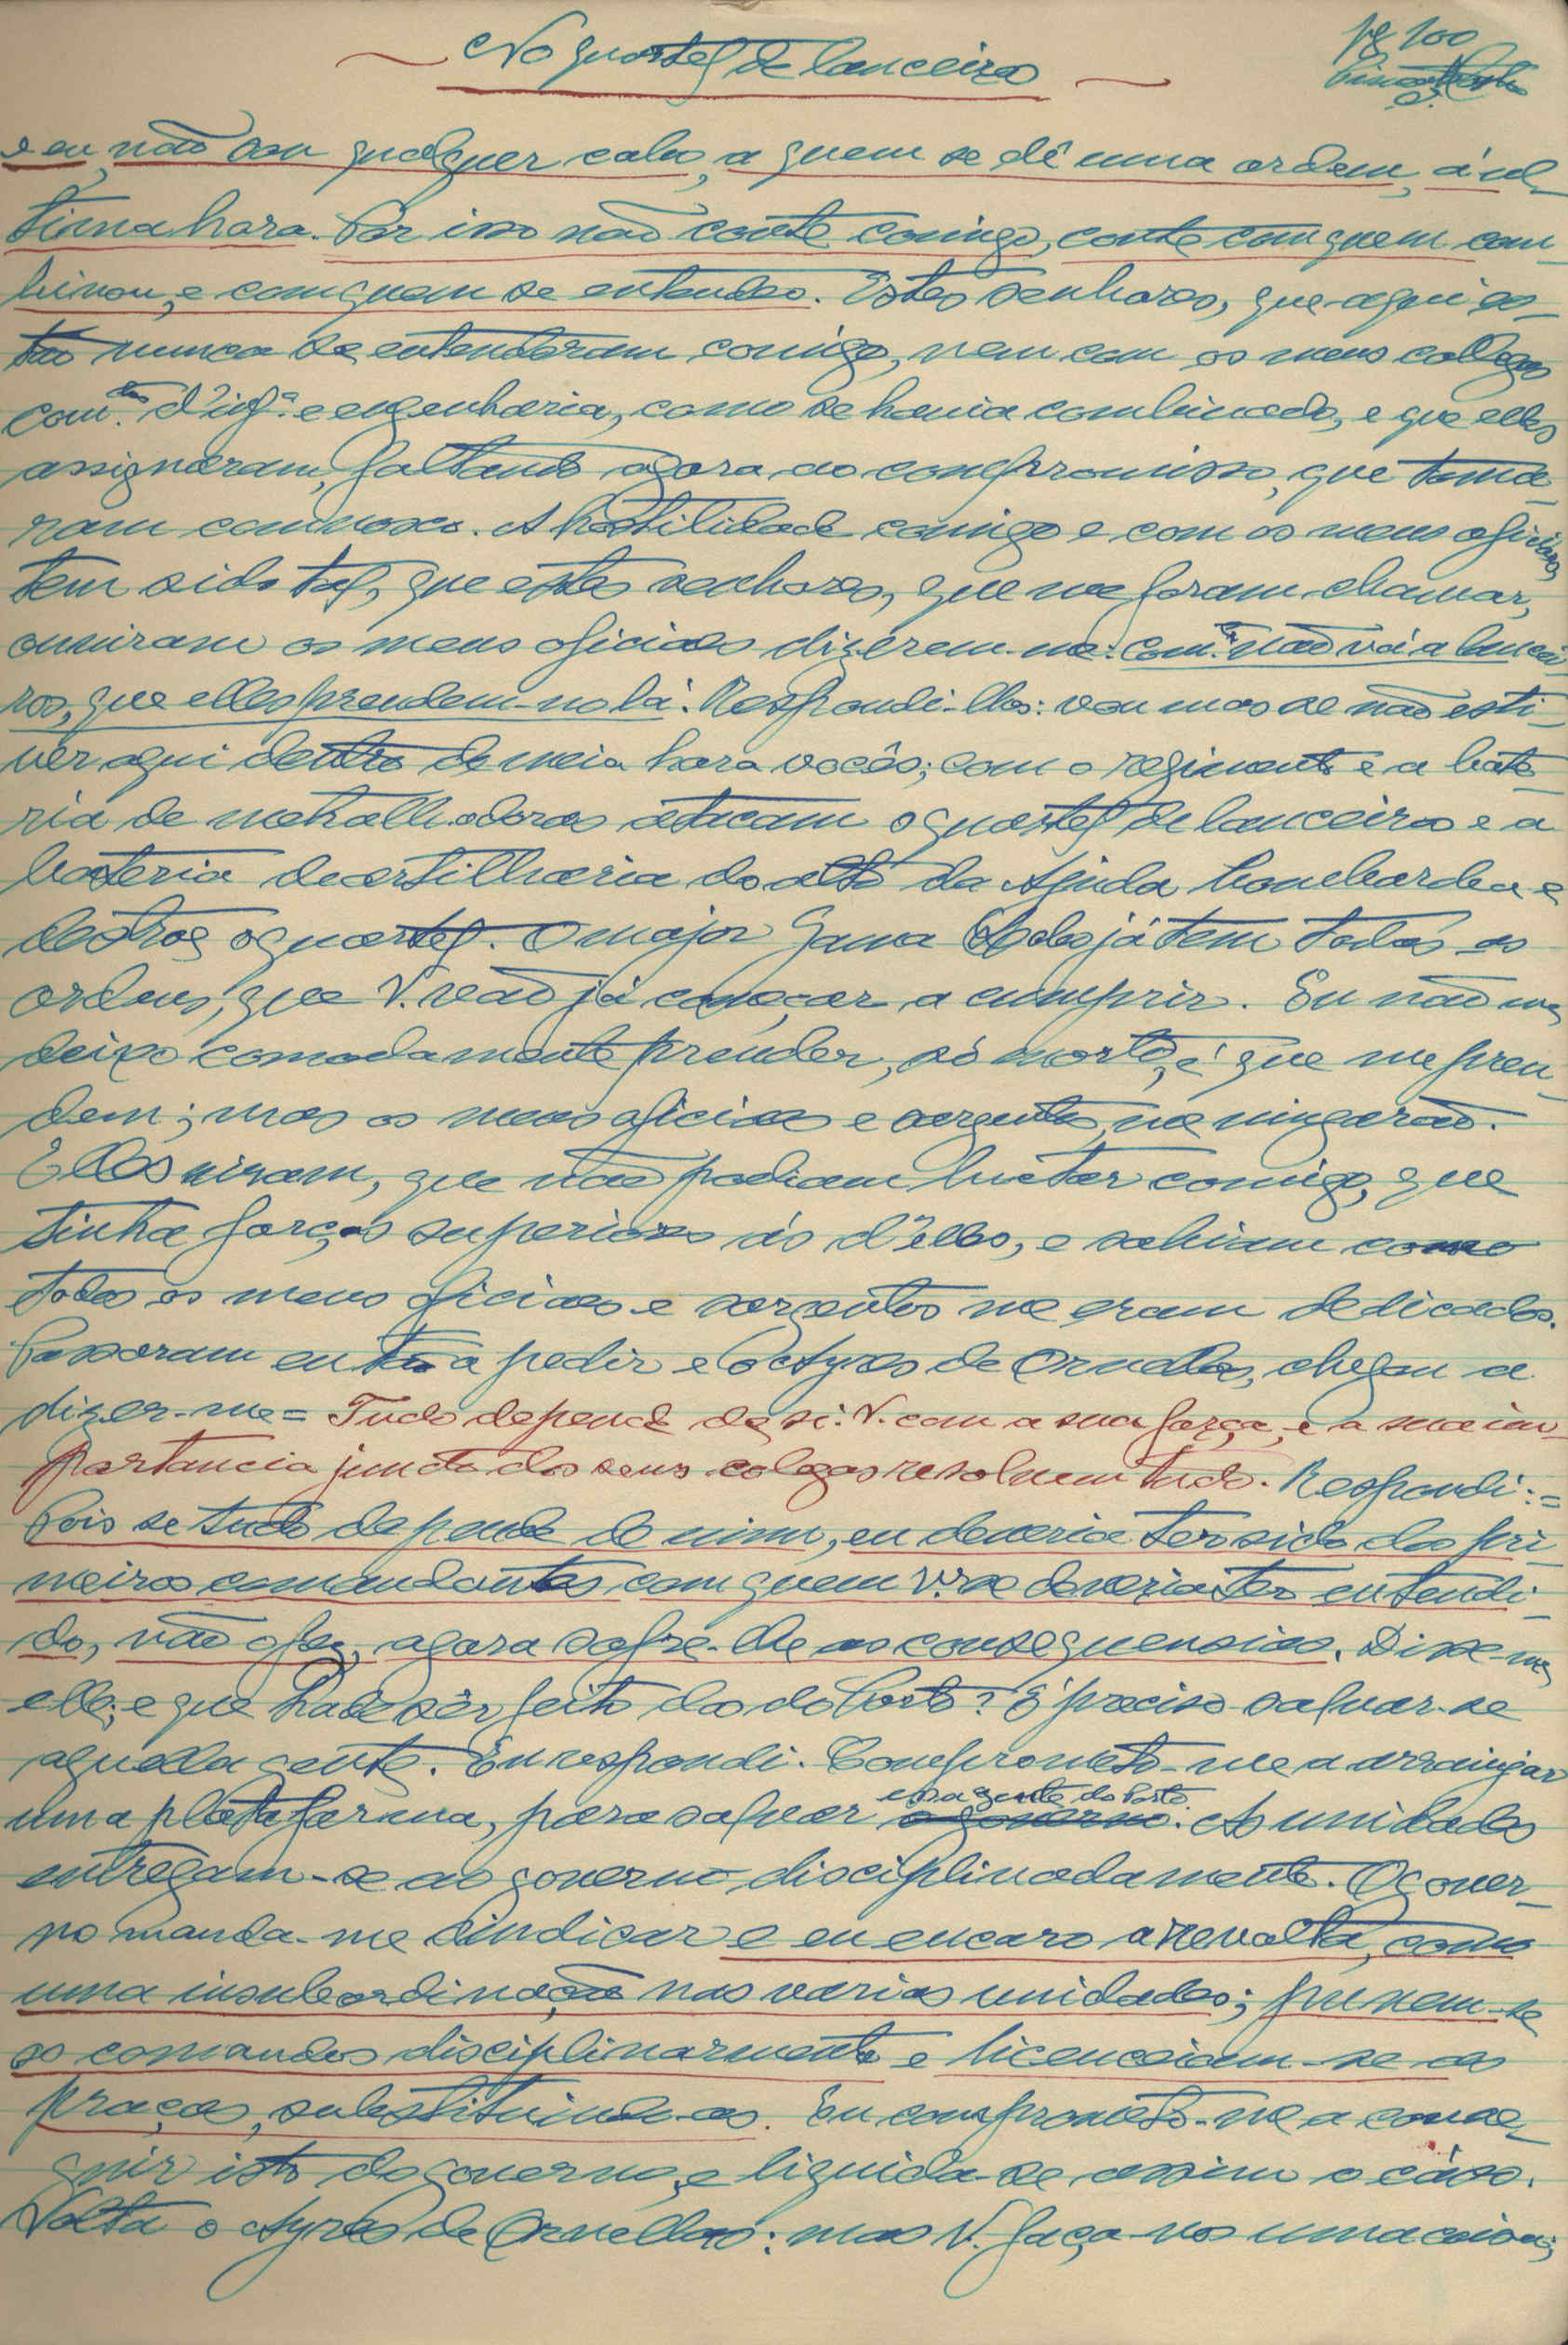 No quartel de lanceiros
pg 100
e eu, não sou qualquer cabo, a quem se dê uma ordem, á ul-
tima hora. Por isso não conte comigo, conte com quem com-
binou, e com quem se entendeo. Estes senhores, que aqui es-
tão nunca se entenderam comigo, nem com os meus collegas
com.des d'infª e engenharia, como se havia combinado, e que elles
assignaram, faltando agora ao compromisso, que toma-
ram comnosco. A hostilidade comigo e com os meus oficiaes,
tem sido tal, que estes senhores, que me foram chamar,
ouviram os meus oficiaes dizerem-me: com.te não vá a lancei-
ros, que elles prendem-no lá. Respondi-lhes: vou mas se não esti-
ver aqui dentro de meia hora vocês; com o regimento e a bate-
ria de metralhadoras atacam o quartel de lanceiros e a
bateria de artilharia do alto da Ajuda bombardea e
destroe o quartel. O major Gama Lobo já tem todas as
ordens, que V. vão já começar a cumprir. Eu não me
deixo comodamente prender, só morto, é que me pren-
dem; mas os meus oficiaes e sargentos, me vingarão.
Elles viram, que não podiam luctar comigo, que
tinha forças superiores ás d'elles, e sabiam como
todos os meus oficiaes e sargentos me eram dedicados.
Passaram então a pedir e o Ayres de Ornellas, chegou a
dizer-me = Tudo depende de si: V. com a sua força, e a sua im-
portancia junto dos seus colegas resolvem tudo. Respondi: =
Pois se tudo depende de mim, eu deveria ter sido dos pri-
meiros comandantes, com quem V. se deveria ter entendi-
do, não o fez, agora sofre-lhe as consequensias. Disse-me
elle; e que hade sêr feito dos do Porto? É preciso salvar-se
aquella gente. Eu respondi. Comprometo-me a arranjar
uma plataforma, para salvar essa gente do Porto. As unidades
entregam-se ao governo disciplinadamente. O gover-
no manda-me sindicar e eu encaro a revolta, como
uma insubordinação nas varias unidades; punem-se
os comandos disciplinarmente e licenceiam-se as
praças, substituindo-as. Eu comprometo-me a conse-
guir isto do governo, e liquida-se assim o cáso.
Volta o Ayres de Ornellas: mas V. faça-nos uma coisa;